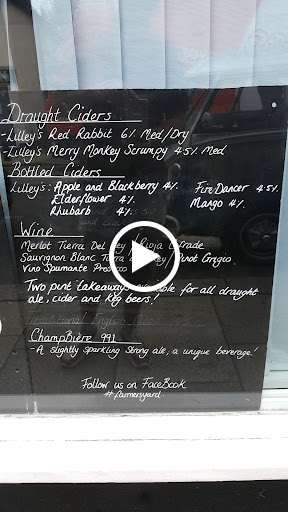 Draught Ciders
-Lilley's Red Rabbit 6% Med/Dry
-Lilley's Merry Monkey Scrumpy 4.5% Med
Bottled Ciders
Lilleys: Apple and Blackberry 4% Fire Dancer 4.5%
Elderflower 4% Mango 4%
Rhubarb 4%
Wine
Merlot Tierra Del Rey / Rioja
Sauvignon Blanc Tierra Rey / Pinot Grigio
Vino Spumante Prosecco
Two pint takeaways available for all draught
ale, cider and keg beers!
ChampBière 991
- A slightly sparkling strong ale, a unique beverage!
Follow us on FaceBook
# farmersyard